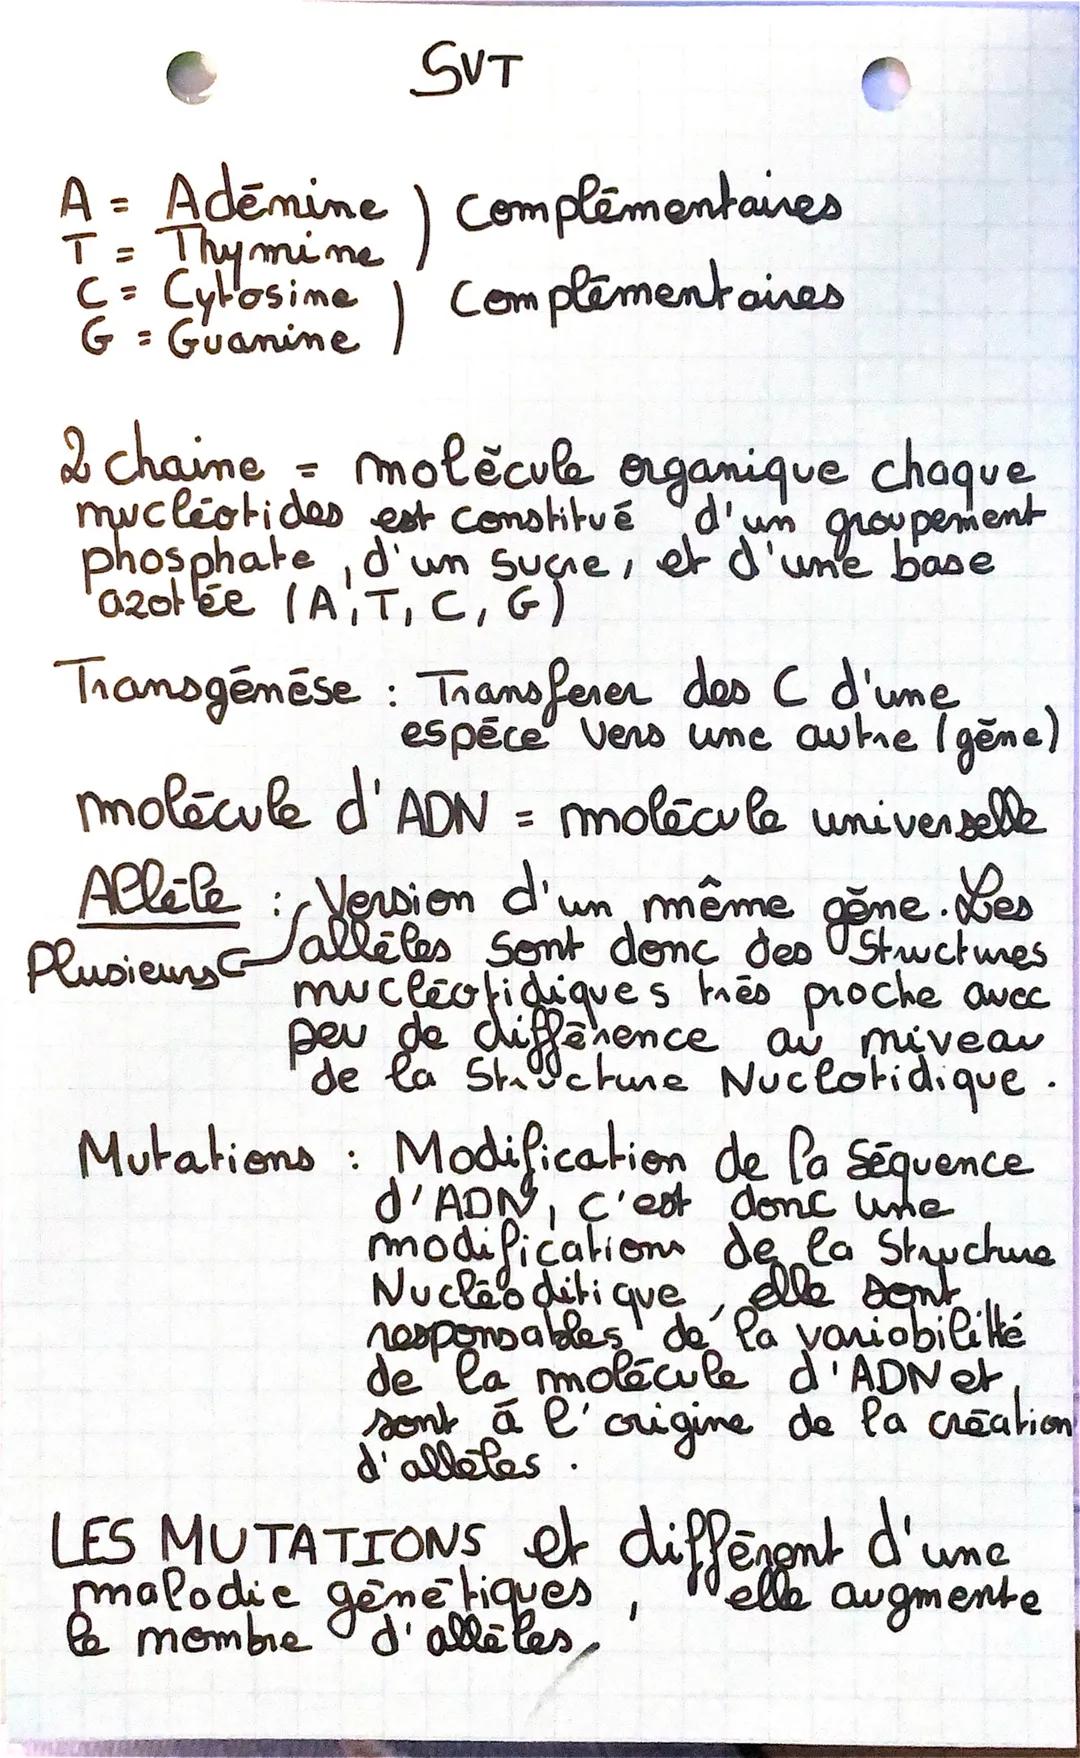 SVT
A = Adénine ) complémentaires
T = Thymine
C = Cytosine ) complémentaires
G = Guanine
2 chaine = molécule organique chaque
nucléotides est constitué d'un groupement
phosphate, d'un sucre, et d'une base
azotée (A, T, C, G)
Transgénèse : Transferer des C d'une
espéce vers une autre (gène)
molécule d'ADN = molécule universelle
Allèle : Version d'un même gène. Les
Plusieurs allèles sont donc des Structures
nucléotidiques très proche avec
peu de différence au niveau
de la Structure Nuclotidique.
Mutations : Modification de la séquence
d'ADN, c'est donc une
modifications de la Structure
Nucléoditique, elle sont
responsables de la variabilitté
de la molécule d'ADN et
sont à l'origine de la création
d'allèles.
LES MUTATIONS et différent d'une
maladie génétiques, elle augmente
le nombre d'allèles,